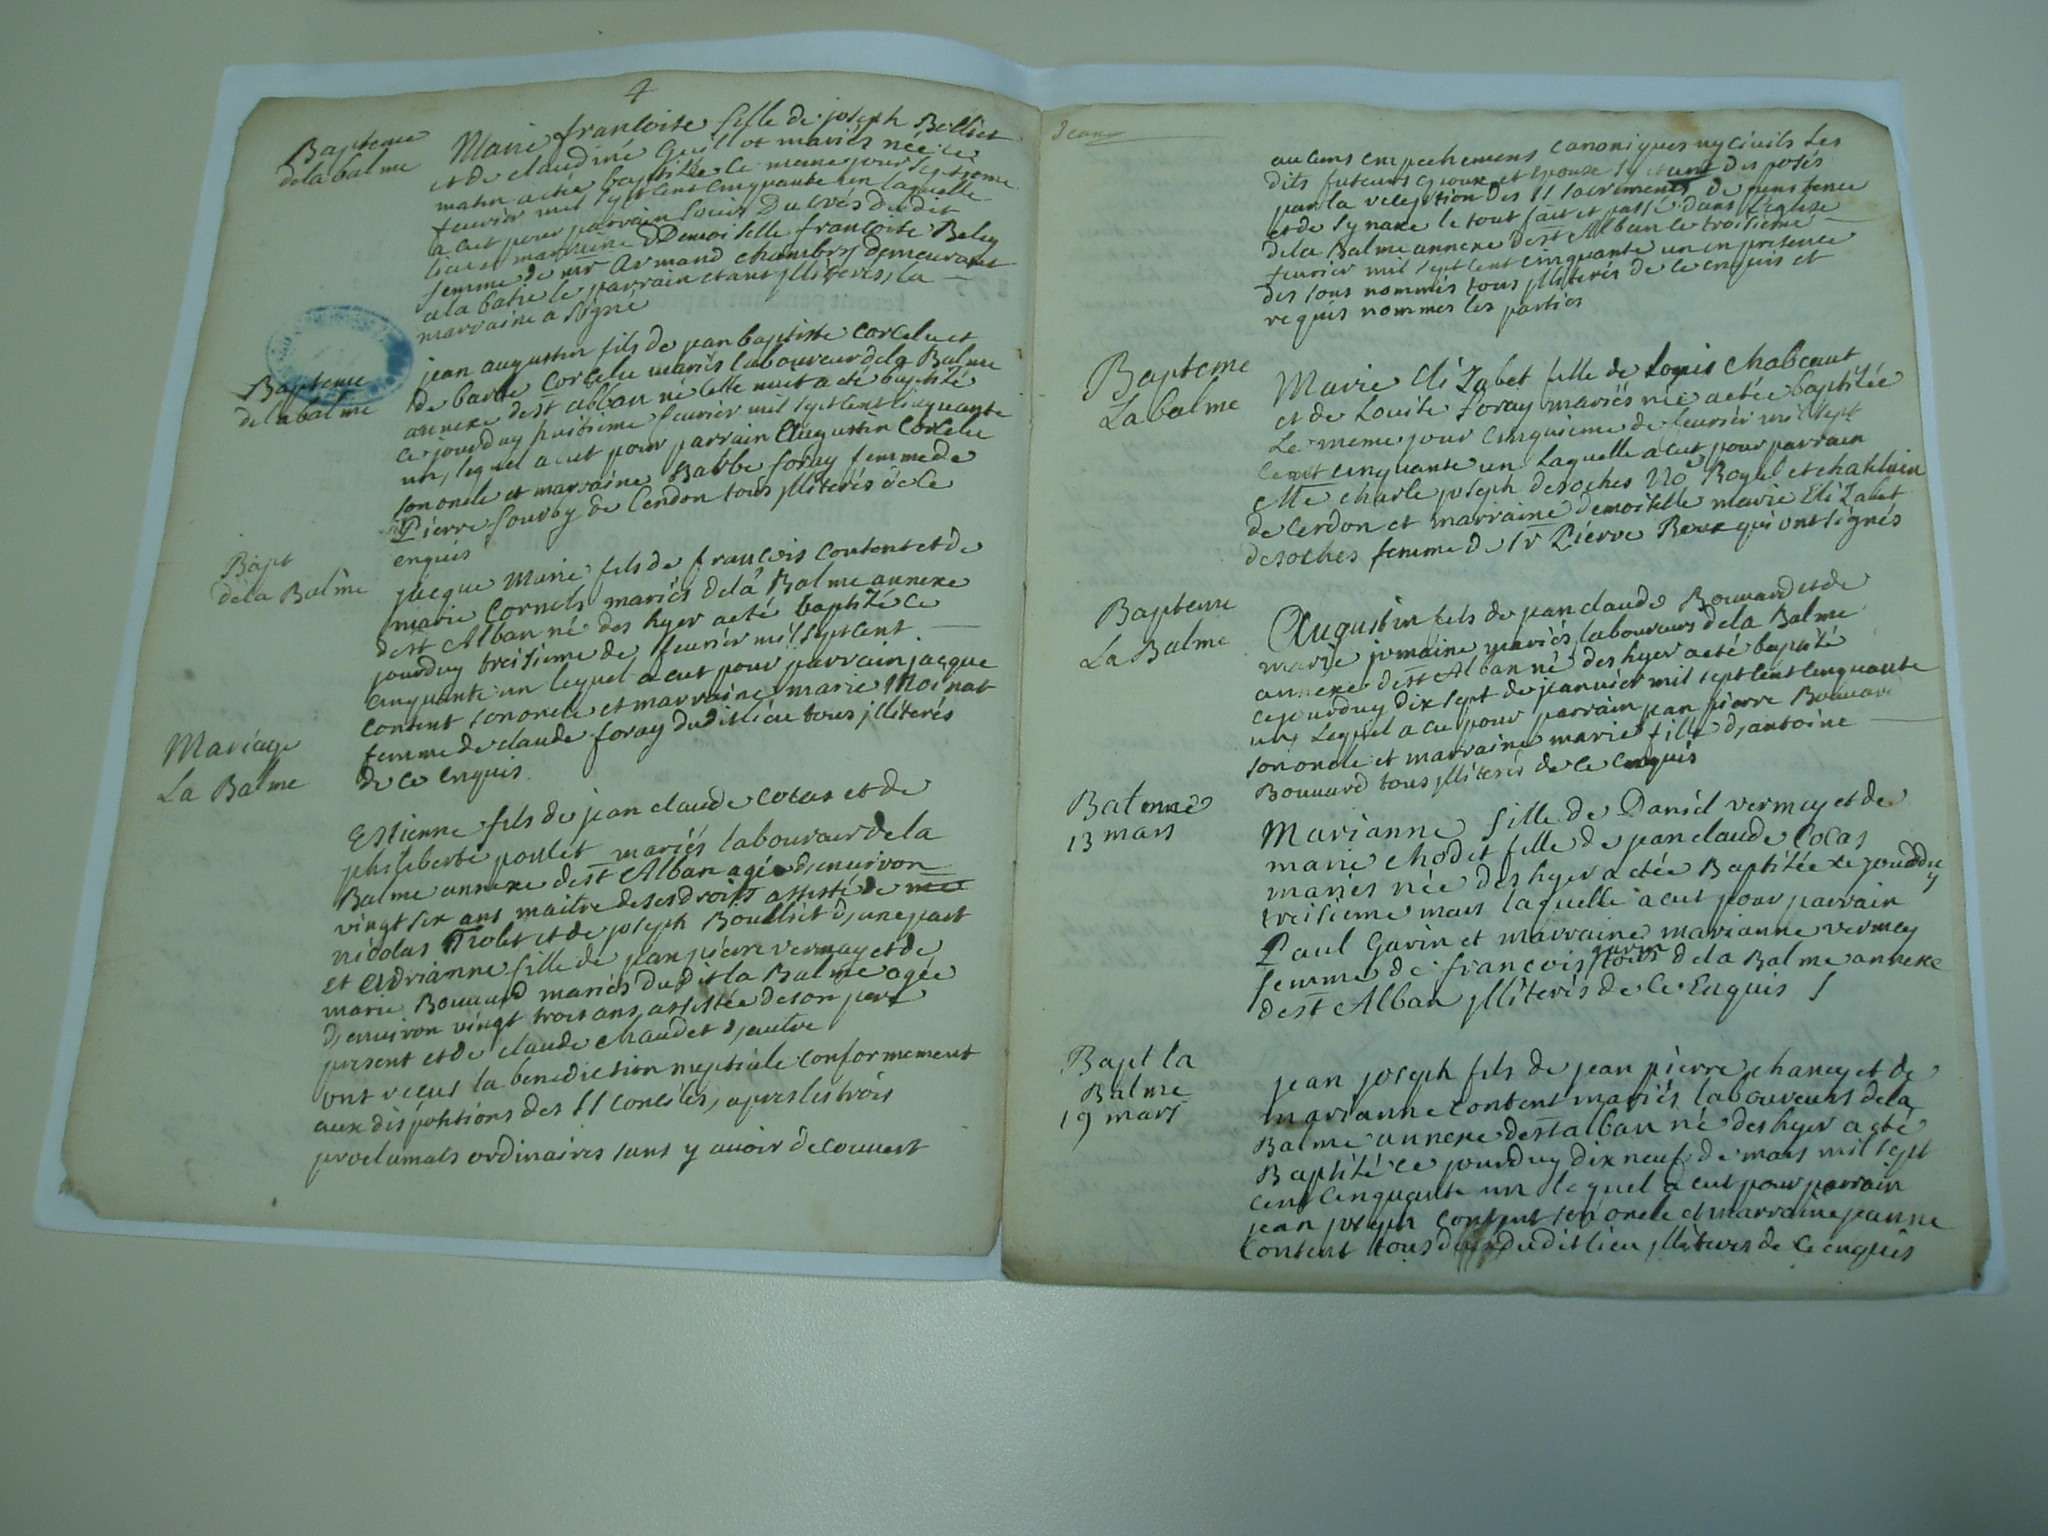 4
Bapteme
dela balme
Marie francoise fille de joseph Bolliet
et de claudine Guillot mariés née ce
matin a été baptisée ce meme jour septieme
feuvrier mil sept cent cinquante un laquelle
a eut pour parrain Ducrés dudit
lieu et marraine Demoiselle francoise Beley
femme de mr Armand chambry demeurant
a la batie le parrain etant illiterés, la
marraine a signé
Bapteme
de la balme
jean augustin fils de jean baptiste Corcelu et
de barbe Corcelu mariés laboureur dela Balme
annexe de st alban né cette nuit a été baptisé
ce jourduy huitieme feuvrier mil sept cent cinquante
un, lequel a eut pour parrain Augustin Corcelu
son oncle et marraine Barbe foray femme de
Pierre Gourdy de Cerdon tous illiterés de ce
enquis
Bapt
dela Balme
jacque Marie fils de francois Content et de
marie Cornelu mariés dela Balme annexe
de st Alban né des hyer a eté baptizé ce
jourduy treisieme de feuvrier mil sept cent
cinquante un lequel a eut pour parrain jacque
Content son oncle et marraine marie Moinat
femme de claude foray dudit lieu tous illiterés
de ce enquis
Mariage
La Balme
Estienne fils de jean claude Cocas et de
philiberte poulet mariés laboureur dela
Balme annexe de st Alban agé d'environ
vingt six ans maitre de ses droits assisté de
nicolas Tiolet et de joseph Boulliet d'une part
et Adrianne fille de jean pierre vermay et de
marie Bouvard mariés dudit la Balme agée
d'environ vingt trois ans, assistée de son pere
present et de claude chaudet d'autre
ont recus la benediction nuptiale conformement
aux dispositions des SS conciles, apres les trois
proclamats ordinaires sans y avoir decouvert
aucuns empechemens canoniques ny civils les
dits futeurs epoux et epouse sy etant disposés
par la reception des SS sacrements de penitence
et de synaxe le tout fait et passé dans l'eglise
dela Balme annexe de st Alban le troisieme
feuvrier mil sept cent cinquante un en presence
des sous nommés tous illiterés de ce enquis et
requis nommés les parties
Bapteme
La balme
Marie Elizabet fille de Louis Chabeaut
et de Louise foray mariés née a etée baptisée
Le meme jour cinquieme de feuvrier mil sept
cent cinquante un Laquelle a eut pour parrain
Me charle joseph desoches No Royal et chatelain
de Cerdon et marraine demoiselle marie Elizabet
desoches femme de Sr Pierre Roux qui ont signés
Bapteme
La Balme
Augustin fils de jean claude Bouvard et de
marie jomaine mariés laboureurs dela Balme
annexe de st Alban né des hyer a eté baptisé
ce jourduy dix sept de jeanvier mil sept cent cinquante
un, Lequel a eu pour parrain jean pierre Bouvard
son oncle et marraine marie fille d'antoine
Bouvard tous illiterés de ce enquis
Bateme
13 mars
Marianne fille de Daniel vermay et de
marie chodet fille de jean claude Cocas
mariés née des hyer a etée Baptisée ce jourduy
treisieme mars laquelle a eut pour parrain
Paul Gavin et marraine marianne vermay
femme de francois gavin dela Balme annexe
de st Alban illiterés de ce Enquis
Bapt la
Balme
19 mars
jean joseph fils de jean pierre chaney et de
marianne Content mariés laboureurs dela
Balme annexe de st alban né des hyer a eté
Baptisé ce jourduy dix neuf de mars mil sept
cent cinquante un lequel a eut pour parrain
jean joseph Content son oncle et marraine jeanne
Content tous deux dudit lieu illiterés de ce enquis